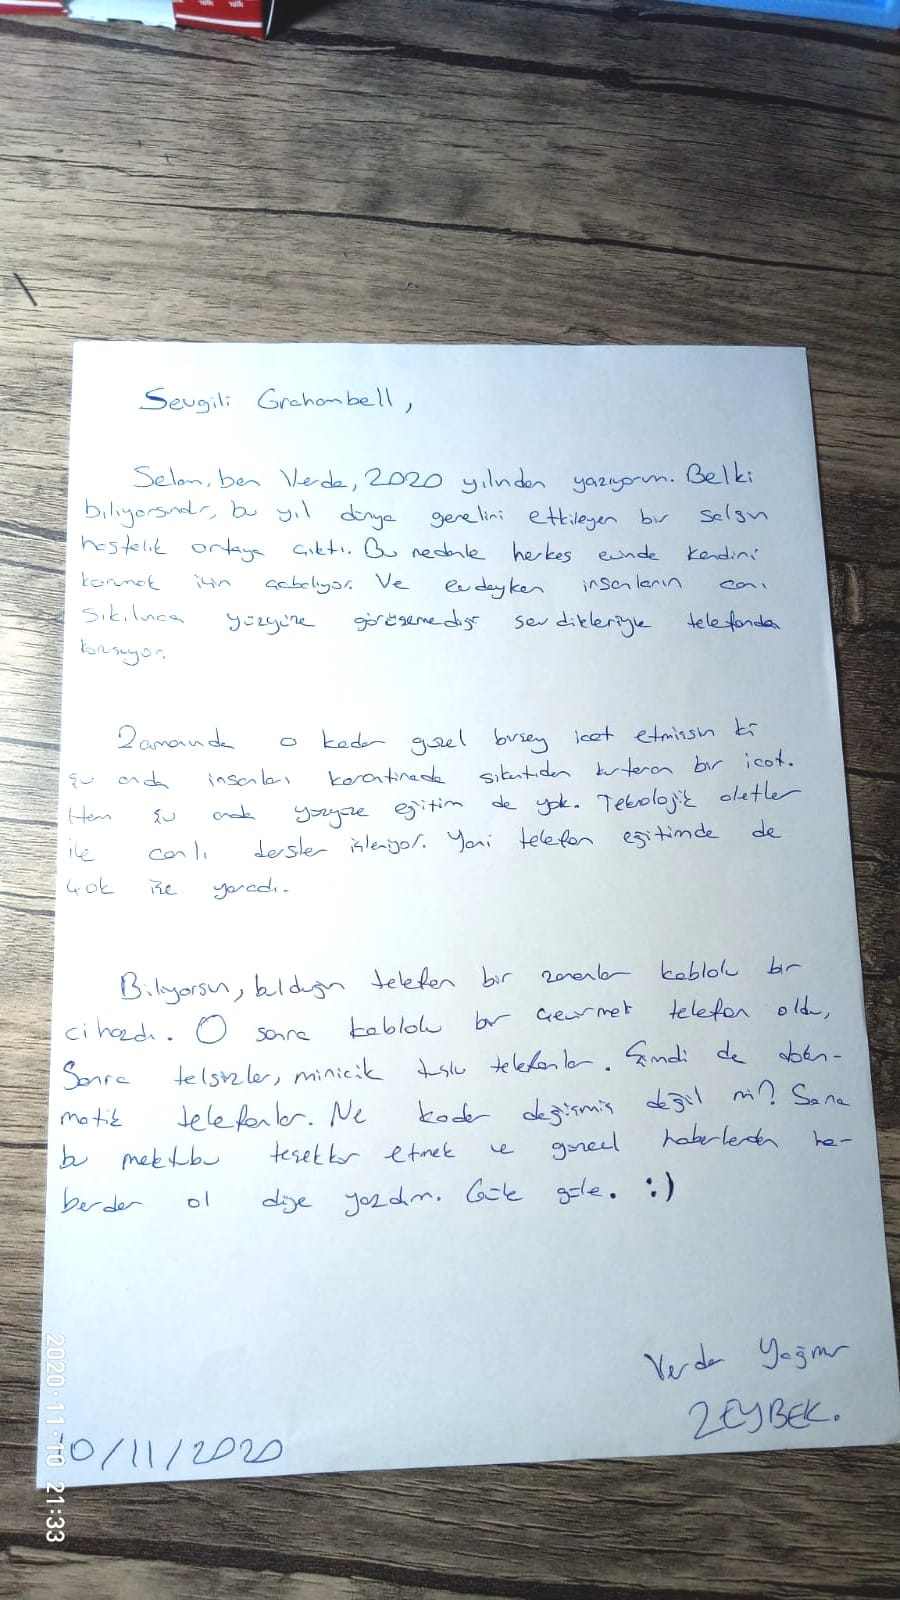 Sevgili Grahambell,
Selam, ben Verda, 2020 yılından yazıyorum. Belki
biliyorsundur, bu yıl dünya genelini etkileyen bir salgın
hastalık ortaya çıktı. Bu nedenle herkes evinde kendini
korumak için çabalıyor. Ve evdeyken insanların canı
sıkılınca yüzyüze görüşemediği sevdikleriyle telefonda
konuşuyor.
Zamanında o kadar güzel birşey icat etmişsin ki
şu anda insanları karantinada sıkıntıdan kurtaran bir icat.
Hem şu anda yüzyüze eğitim de yok. Teknolojik aletler
ile canlı dersler işleniyor. Yani telefon eğitimde de
çok işe yaradı.
Biliyorsun, bulduğun telefon bir zamanlar kablolu bir
cihazdı. O sonra kablolu bir çevirmeli telefon oldu,
Sonra telsizler, minicik tuşlu telefonlar. Şimdi de dokun-
matik telefonlar. Ne kadar değişmiş değil mi? Sana
bu mektubu teşekkür etmek ve güncel haberlerden ha-
berdar ol diye yazdım. Güle güle. :)
Verda Yağmur
ZEYBEK.
10/11/2020
2020-11-10 21:33